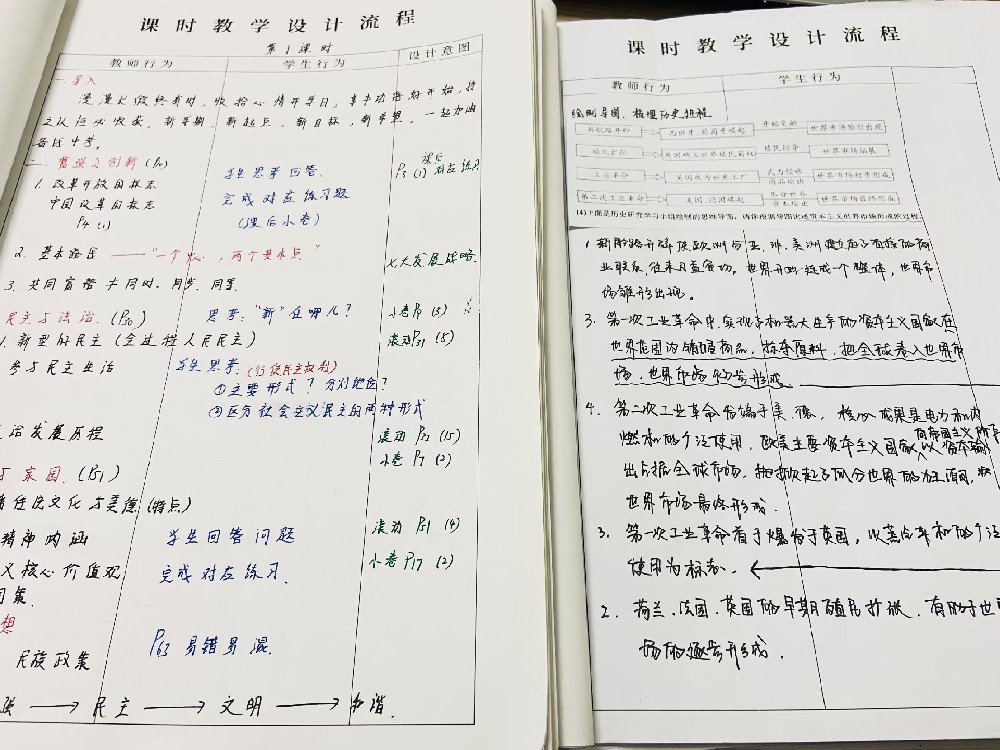 课时教学设计流程
第1课时
教师行为 学生行为 设计意图
一.导入
漫漫长假终有时,收拾心情开学日,
之以恒必收获.新学期,新起点,新目标,新希望,一起加油
备战中考.
二.富强与创新(P)
学生思考回答.
课后
P3 (1) 对应练习
1.改革开放的标志
中国改革的标志
P4 (1)
完成对应练习题
(课后小卷)
2.基本路线 ——“一个中心,两个基本点”
七大发展战略.
3.共同富裕 不同时、同步、同等.
民主与法治.(P30)
思考:“新”在哪儿?
小卷P (3)
1.新型的民主(全过程人民民主)
滚动P31 (5)
参与民主生活
学生思考:(行使民主权利)
①主要形式?分别地位?
②区分社会主义民主的两种形式
法治发展历程
滚动 P33 (15)
小卷 P7 (2)
与家园.(P51)
传统文化与美德(特点)
滚动 P51 (4)
精神内涵
学生回答问题
小卷 P17 (2)
义核心价值观
完成对应练习.
国策.
想
P63 易错易混.
民族政策
强 → 民主 → 文明 → 和谐.
课时教学设计流程
教师行为 学生行为
绘制导图,梳理历史进程
新航路开辟 西班牙、葡萄牙崛起 开始交融 世界市场雏形出现
殖民扩张 英国确立世界殖民霸权 殖民掠夺 世界市场拓展
工业革命 英国成为世界工厂 商品输出 世界市场初步形成
第二次工业革命 美国、德国崛起 资本输出 世界市场最终形成
(4)上面是历史研究学习小组绘制的思维导图,请你根据导图论述资本主义世界市场形成的过程.
1.新航路开辟使欧洲与亚、非、美洲建立了直接的商
业联系,往来日益密切,世界开始连成一个整体,世界市
场雏形出现.
3.第一次工业革命中,实现了机器大生产的资本主义国家在
世界范围内销售商品,掠夺原料,把全球卷入世界市
场,世界市场初步形成
4.第二次工业革命首倡于美、德,核心成果是电力和内
燃机的广泛使用,欧美主要资本主义国家向帝国主义阶段,以资本输
出占据全球市场,掀起了瓜分世界的狂潮,
世界市场最终形成.
3.第一次工业革命首于爆发于英国,以蒸汽机的广泛
使用为标志.
2.荷兰、法国、英国的早期殖民扩张,有助于世
场的逐步形成.